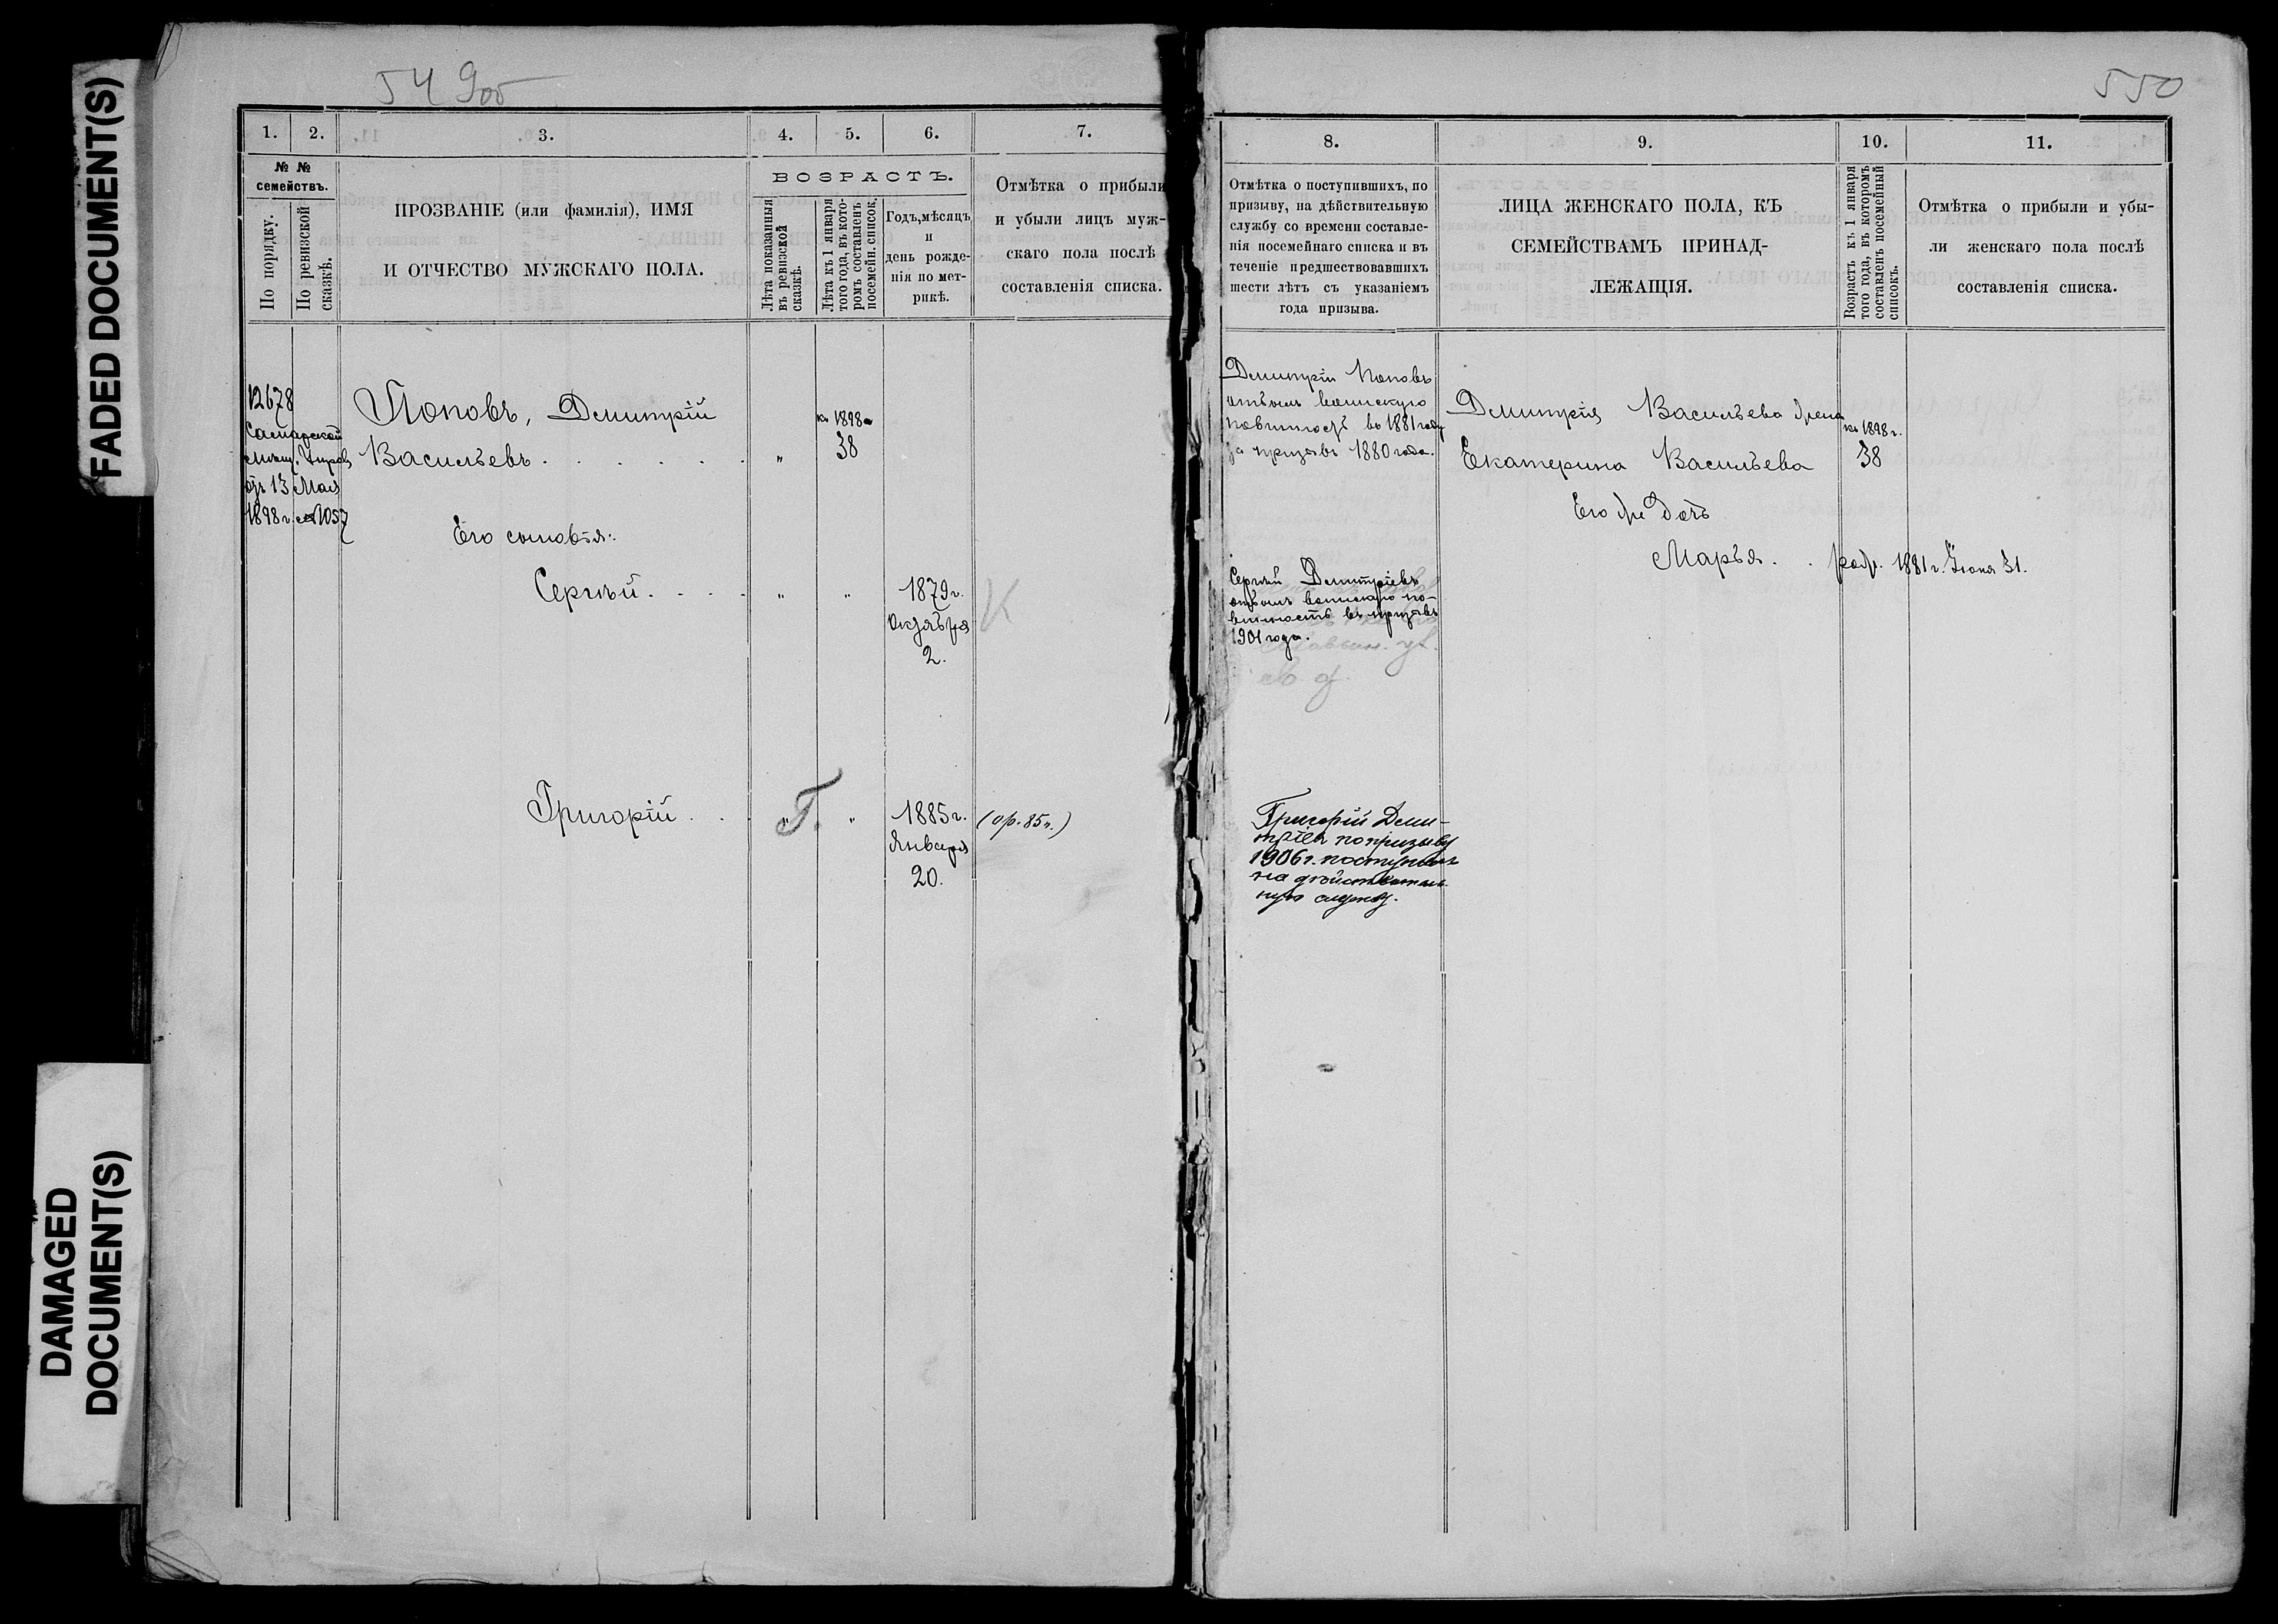 FADED DOCUMENT(S)
DAMAGED
DOCUMENT(S)
549 об
1. 2. 3. 4. 5. 6. 7.
№ №
семействъ.
По порядку.
По ревизской
сказкѣ.
ПРОЗВАНІЕ (или фамилія), ИМЯ
И ОТЧЕСТВО МУЖСКАГО ПОЛА.
ВОЗРАСТЪ.
Лѣта показанныя
въ ревизской
сказкѣ.
Лѣта къ 1 января
того года, въ кото-
ромъ составленъ
посемейн. список.
Годъ, мѣсяцъ
и
день рожде-
нія по мет-
рикѣ.
Отмѣтка о прибыли
и убыли лицъ муж-
скаго пола послѣ
составленія списка.
12678
Самарской
мѣщ. Управы
отъ 13 Мая
1898 г. № 1057
Поповъ, Дмитрій
Васильевъ . . . . . „
къ 1898 г.
38
Его сыновья:
Сергѣй . . . . „ „ 1879 г.
Октября
2.
К
Григорій . . . „ Г. „ 1885 г. (ор. 85 г.)
Января
20.
550
8. 9. 10. 11.
Отмѣтка о поступившихъ, по
призыву, на дѣйствительную
службу со времени составле-
нія посемейнаго списка и въ
теченіе предшествовавшихъ
шести лѣтъ съ указаніемъ
года призыва.
ЛИЦА ЖЕНСКАГО ПОЛА, КЪ
СЕМЕЙСТВАМЪ ПРИНАД-
ЛЕЖАЩІЯ.
Возрастъ къ 1 января
того года, въ которомъ
составленъ посемейный
списокъ.
Отмѣтка о прибыли и убы-
ли женскаго пола послѣ
составленія списка.
Дмитрій Поповъ
отбылъ воинскую
повинность въ 1881 году
за призывъ 1880 года.
Дмитрія Васильева жена
Екатерина Васильева
къ 1898 г.
38
Его же дочь
Марья . . род. 1881 г. Іюня 31.
Сергѣй Дмитріевъ
отбылъ воинскую по-
винность въ призывъ
1901 года.
Григорій Дми-
тріев по призыву
1906 г. поступилъ
на дѣйствитель-
ную службу.